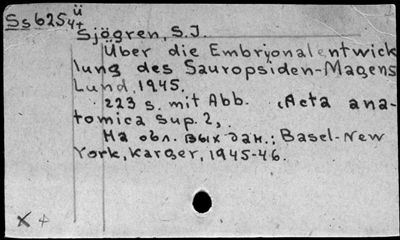 Ss625 ü
4+
Sjögren, S.J.
Über die Embryonalentwick
lung des Sauropsiden-Magens
Lund, 1945.
223 s. mit Abb. (Acta ana-
tomica Sup. 2,
На обл. вых дан.: Basel-New
York, Karger, 1945-46.
X 4